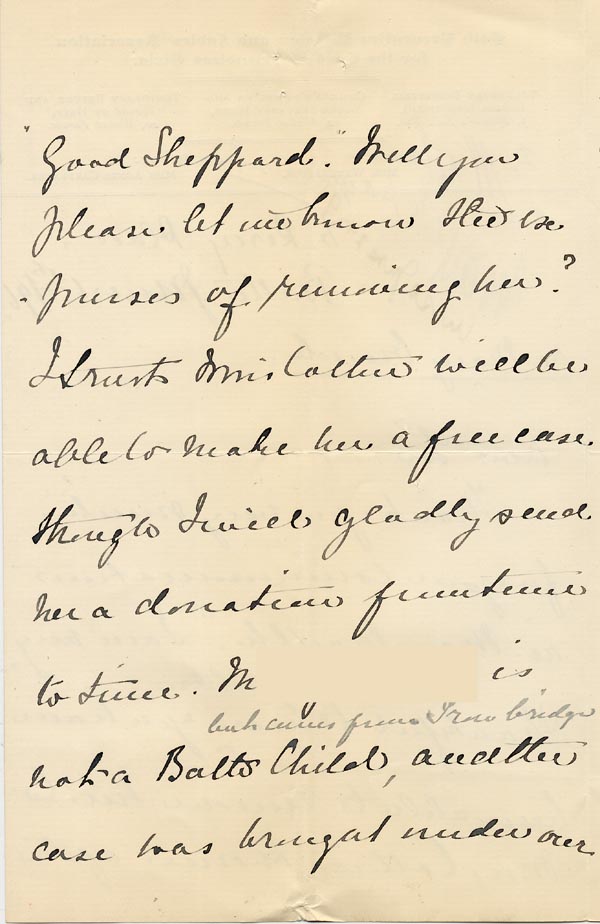 "Good Sheppard". Will you
please let me know the ex
-penses of removing her?
I trust Miss Cotter will be
able to make her a free case
though I will gladly send
her a donation from time
to time. M is
but comes from Trowbridge
not a Balto Child, and the
case was brought under our